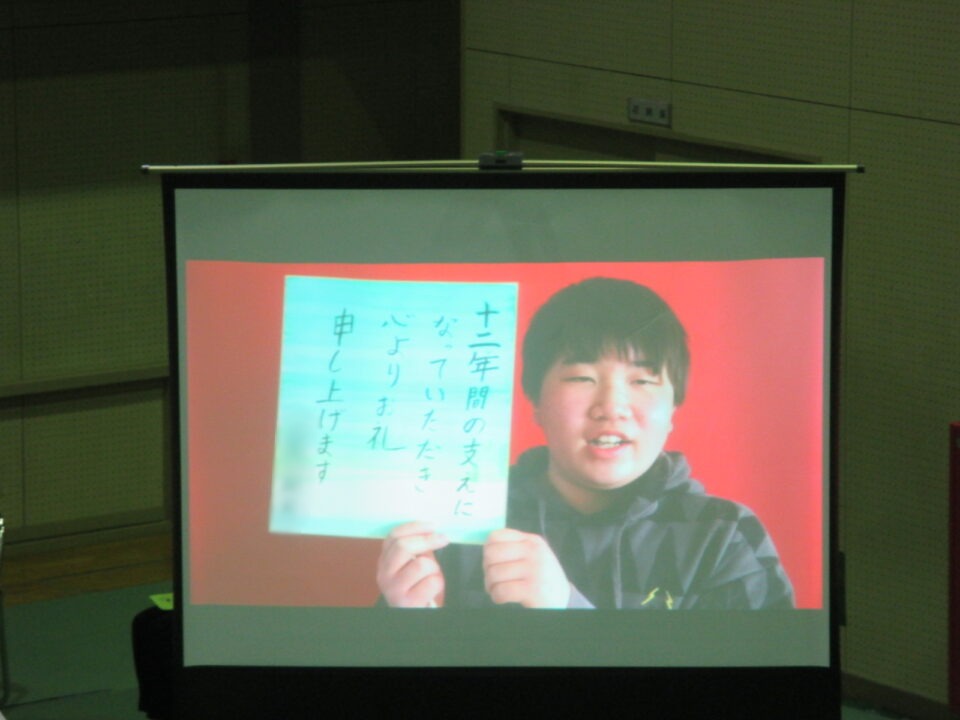 十二年間の支えに
なっていただき
心よりお礼
申し上げます